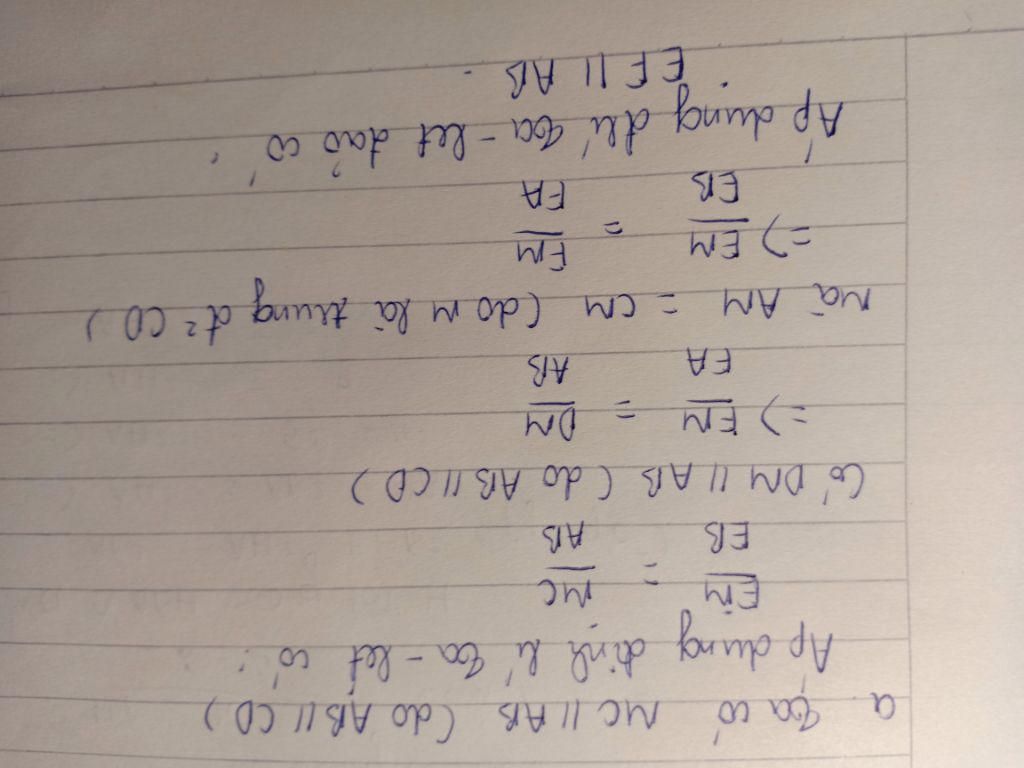 a. Ta có MC // AB (do AB // CD)
Áp dụng định lí Ta-let có:
EM/EB = MC/AB
Có DM // AB (do AB // CD)
=> FM/FA = DM/AB
Mà AM = CM (do M là trung đ² CD)
=> EM/EB = FM/FA
Áp dụng đlí Ta-let đảo có:
EF // AB.